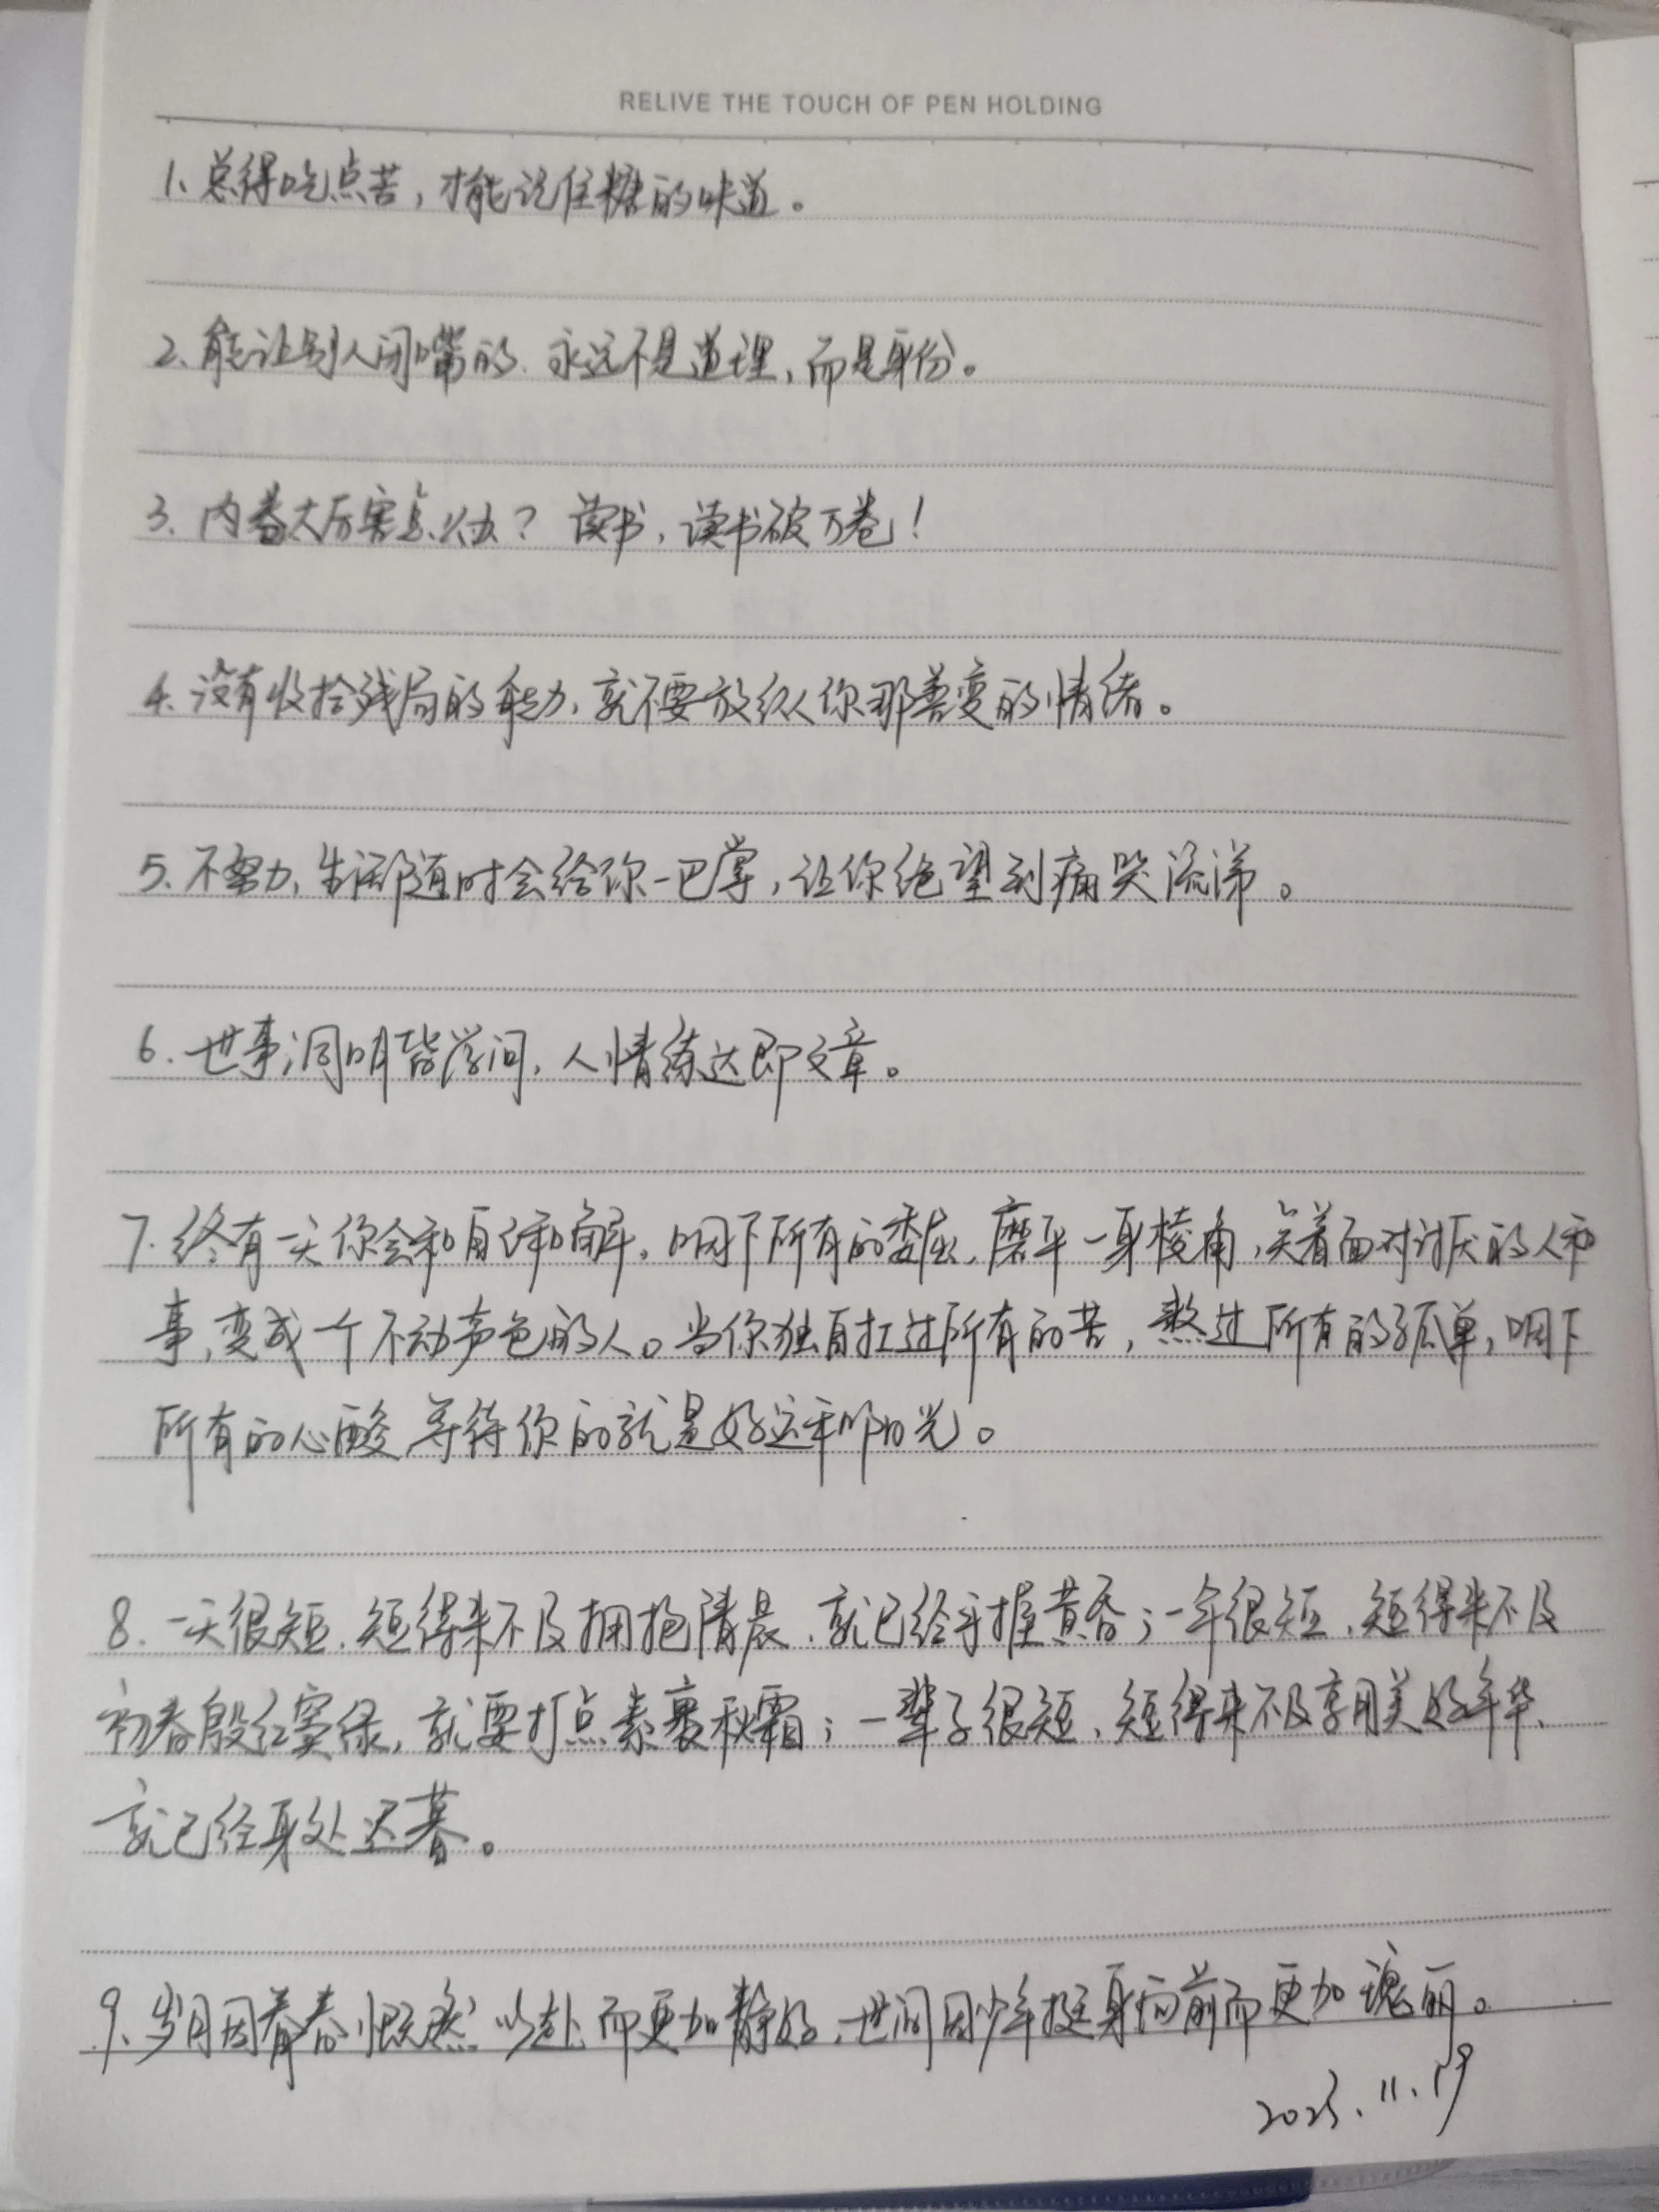 RELIVE THE TOUCH OF PEN HOLDING
1、总得吃点苦，才能记住糖的味道。
2、能让别人闭嘴的、永远不是道理，而是身份。
3、内卷太厉害怎么办？读书，读书破万卷！
4、没有收拾残局的能力，就不要放纵你那善变的情绪。
5、不努力，生活随时会给你一巴掌，让你绝望到痛哭流涕。
6、世事洞明皆学问，人情练达即文章。
7、终有一天你会和自己和解，咽下所有的委屈，磨平一身棱角，笑着面对讨厌的人和
事，变成一个不动声色的人。当你独自扛过所有的苦，熬过所有的孤单，咽下
所有的心酸，等待你的就是好运和阳光。
8、一天很短，短得来不及拥抱清晨，就已经手握黄昏；一年很短，短得来不及
初春殷红窦绿，就要打点素裹秋霜；一辈子很短，短得来不及享用美好年华，
就已经身处迟暮。
9、岁月因青春慨然以赴而更加静好，世间因少年挺身向前而更加瑰丽。
2023.11.19